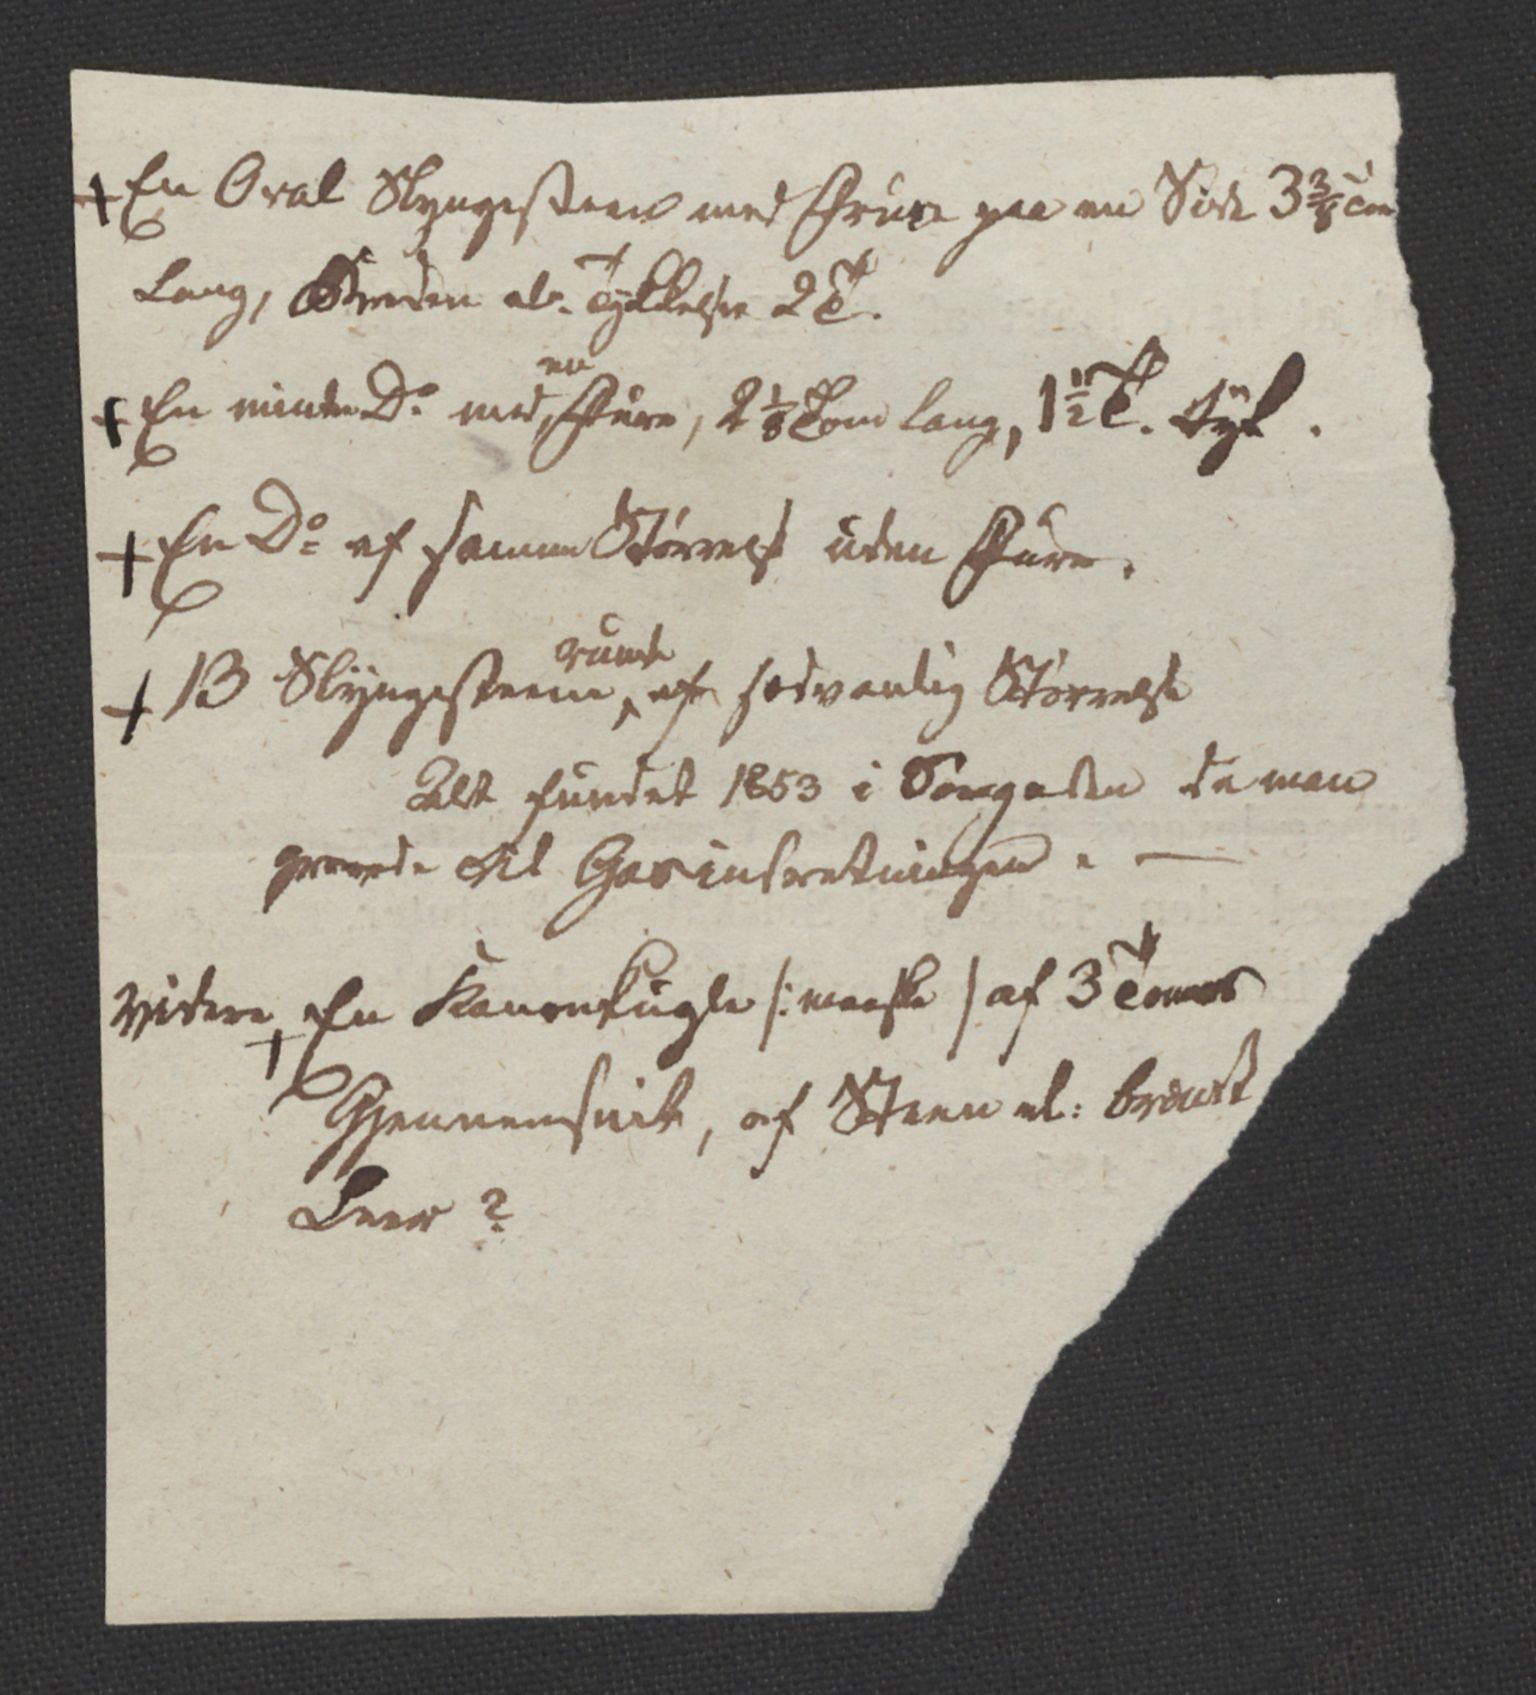 + En Oval Slyngesteen med Fhure paa en Side 3 3/8 Tom
lang, Breden el. Tykkelsen 2 T.
+ En mindre Do. med en Fhure, 2 1/8 Tom lang, 1 1/2 T. tyk.
+ En Do. af samme Størrelse uden Fhure.
+ 13 Slyngesteene, runde af sædvanlig Størrelse
Alt fundet 1853 i Tomgaden da man
gravede til Gasindretningen. —
Videre + En Kanonkugle /: maaske / af 3 Tommes
Gjennemsnit, af Steen el: brændt
Leer?